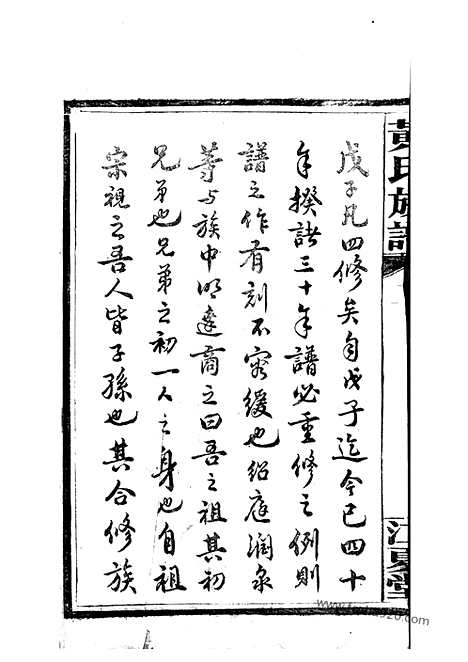 黃氏族譜
江夏堂
戊子凡四修矣自戊子迄今已四十
年揆諸三十年譜必重修之例則
譜之作有刻不容緩也紹庭潤泉
等与族中明達商之曰吾之祖其初
兄弟也兄弟之初一人之身也自祖
宗視之吾人皆子孫也其合修族